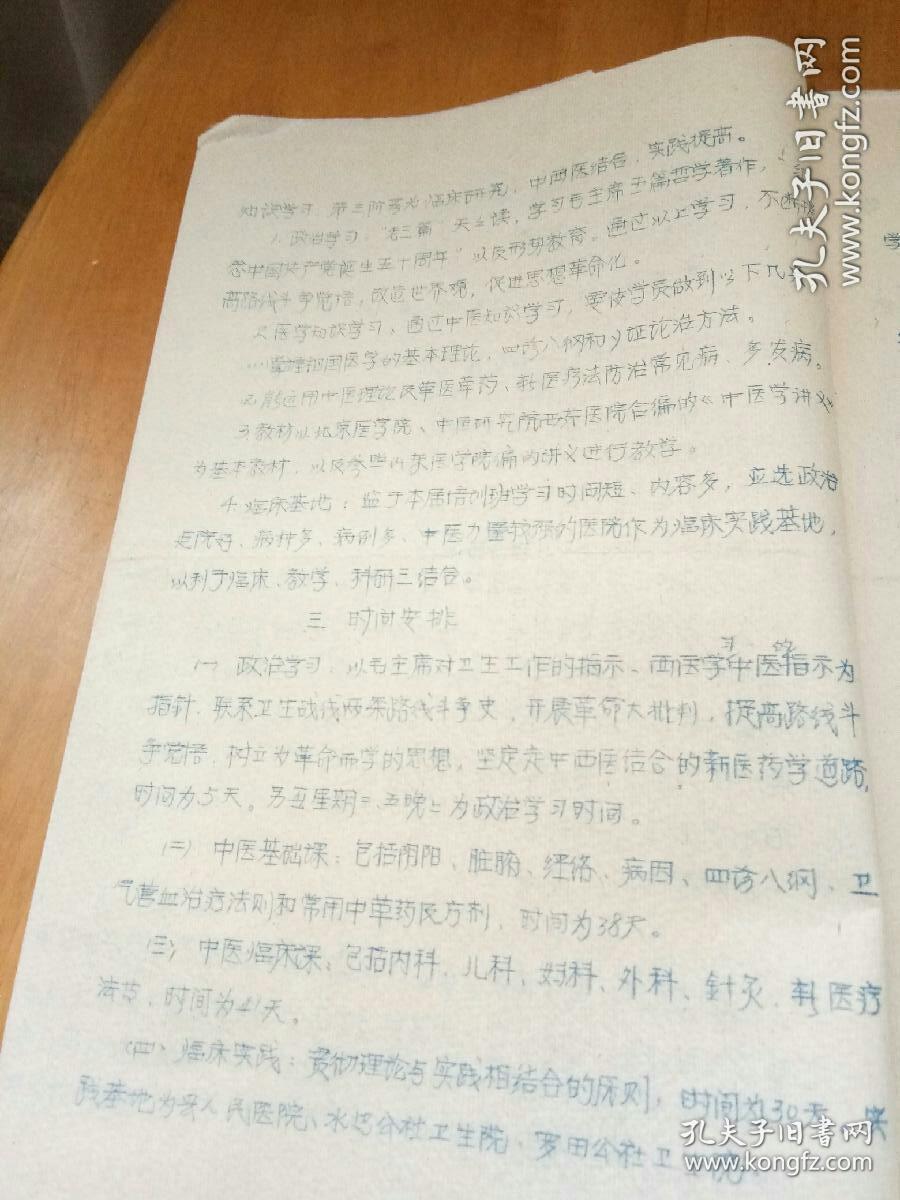 知识学习，第三阶段为临床研究，中西医结合，实践提高。
1. 政治学习 "老三篇"天天读，学习毛主席五篇哲学著作，
念中国共产党诞生五十周年"以及形势教育。通过以上学习，不断提
高路线斗争觉悟，改造世界观，促进思想革命化。
2. 医学知识学习、通过中医知识学习，要使学员做到以下几
懂祖国医学的基本理论，四诊八纲和证论治方法。
能运用中医理论及草医草药、新医疗法防治常见病、多发病。
3. 教材以北京医学院、中医研究院西苑医院合编的《中医学讲义》
为基本教材，以及参照医学院编的讲义进行教学。
4. 临床基地：鉴于本届培训班学习时间短、内容多，应选政治
建院好、病种多、病例多、中医力量较强的医院作为临床实践基地，
以利于临床、教学、科研三结合。
三 时间安排
(一) 政治学习：以毛主席对卫生工作的指示、西医学习中医指示为
指针，联系卫生战线两条路线斗争史，开展革命大批判，提高路线斗
争觉悟，树立为革命而学的思想，坚定走中西医结合的新医药学道路，
时间为5天。另五星期二、五晚上为政治学习时间。
(二) 中医基础课：包括阴阳、脏腑、经络、病因、四诊八纲、卫
气营血治疗法则和常用中草药及方剂，时间为38天。
(三) 中医临床课：包括内科、儿科、妇科、外科、针灸、新医疗
法等，时间为41天。
(四) 临床实践：贯彻理论与实践相结合的原则，时间为30天。实
践基地为县人民医院、水公社卫生院、罗田公社卫生院
学
孔夫子旧书网
www.kongfz.com
孔夫子旧书网
www.kongfz.com